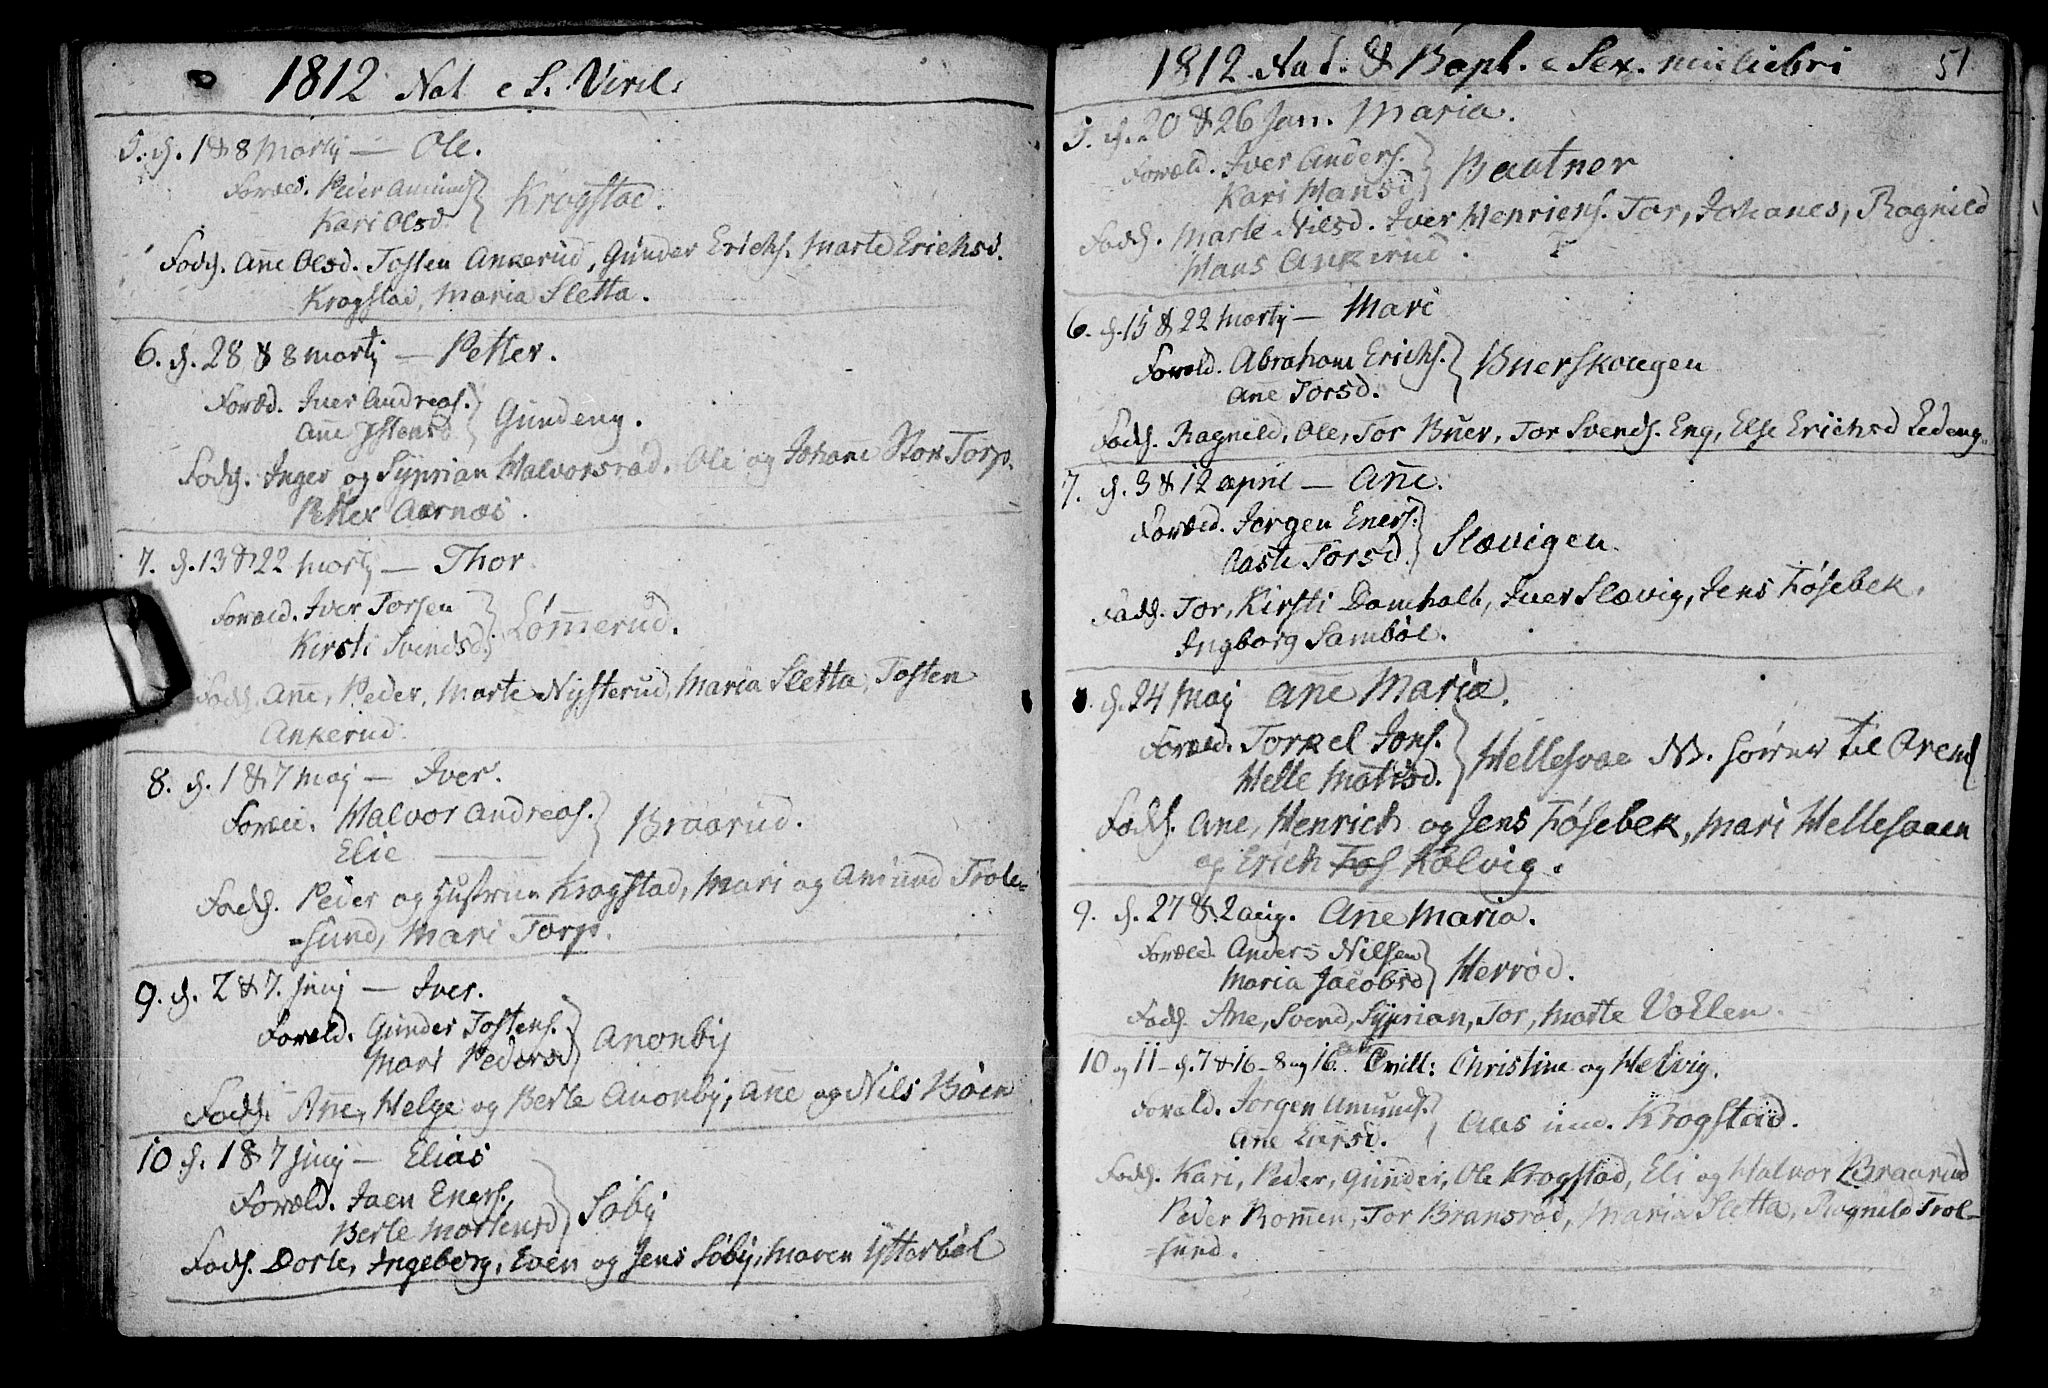 1812 Nat e S. Viril:
5. d. 1 & 8 Martij — Ole.
Foræld. Peder Amunds.
Kari Olsd. } Krogstad.
Fadd. Añe Olsd. Tosten Ankerud, Gunder Erichs. Marte Erichsd.
Krogstad, Maria Sletta.
6. d. 28 & 8 Martij — Petter.
Foræld. Iver Andreas.
Añe Jstensd. } Gundeng.
Fadd. Inger og Syprian Halvorsrød. Ole og Johane Stor Torp.
Petter Aarnæs.
7. d. 13 & 22 Martij — Thor.
Foræld. Iver Torsen
Kirsti Svendsd. } Lom̃erud.
Fadd. Añe, Peder, Marte Nysterud, Maria Sletta, Tosten
Ankerud.
8. d. 1 & 7 Maj — Iver.
Foræld. Halvor Andreas.
Elie — } Braarud.
Fadd. Peder og Hustrue Krogstad, Mari og Amund Trole=
=sund, Mari Torp.
9. d. 2 & 7. Junj — Iver.
Foræld. Gunder Tostens.
Mari Pedersd. } Anonby
Fadd. Añe, Helge og Berte Anonby, Añe og Nils Böen
10 d. 1 & 7 Junj — Elias
Foræld. Jaen Eners.
Berte Mortensd. } Söby
Fadd. Dorte, Ingeberg, Even og Jens Söby, Maren Ytterböl
1812 Nat. & Bapt. e Sex. muliebri 51
5. d. 20 & 26 Jan. Maria.
Foræld. Iver Anders.
Kari Hansd. } Bautner
Fadd. Marte Nilsd. Iver Henriens. Tor, Johanes, Ragnild
Hans Ankerud.
6. d. 15 & 22 Martij — Mari
Foræld. Abraham Erichs.
Añe Torsd. } Buerskougen
Fadd. Ragnild, Ole, Tor Buer, Tor Svends. Eng, Else Erichsd Ledeng.
7. d. 3 & 12 april — Añe.
Foræld. Jorgen Eners.
Aaste Torsd. } Slævigen
Fadd. Tor, Kirsti Damholt, Iver Slævig, Jens Fösebek,
Ingborg Samböl.
8. d. 24 Maj Añe Maria.
Foræld. Torkel Jons.
Helle Matisd. } Hellesvae NB. hörer til Arem
Fadd. Ane, Henrich og Jens Fösebek, Mari Hellesvaen
og Erich Fos Kölvig.
9. d. 27 & 2 aug. Ane Maria.
Foræld. Anders Nilsen
Maria Jacobsd. } Herröd.
Fadd. Ane, Svend, Syprian, Tor, Marte Vollen.
10 og 11 — d. 7 & 16 — 8 og 16. Tvill: Christine og Helvig.
Foræld. Jorgen Amunds.
Ane Larsd. } Aas und. Krogstad.
Fadd. Kari, Peder, Gunder, Ole Krogstad, Eli og Halvor Braarud
Peder Rom̃en, Tor Bransröd, Maria Sletta, Ragnild Trol=
=sund.